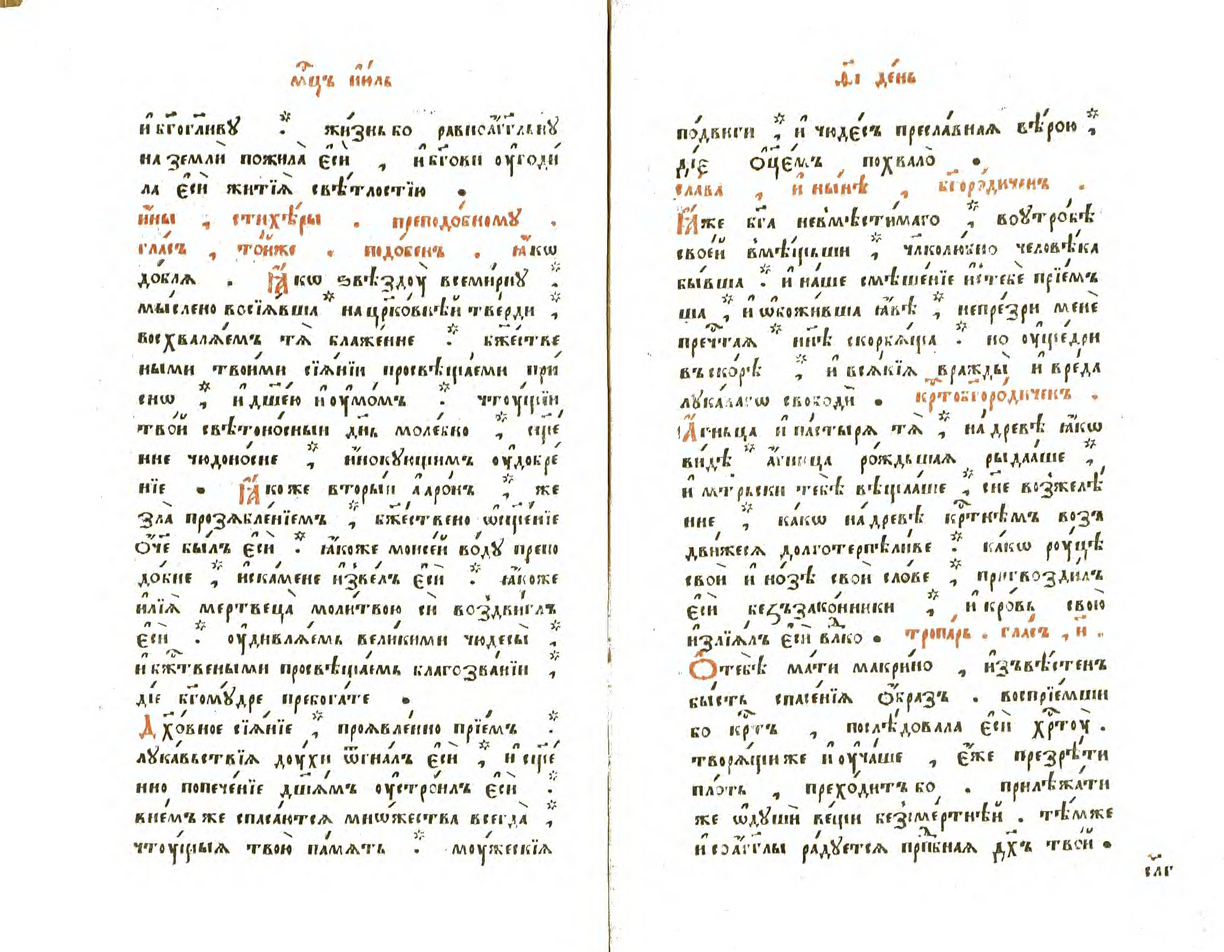 мцⷭ҇ъ і҆ю́ль
и҆ бг҃огли́вꙋ ⁘ жи́знь бо равноа҆́гг҃льнꙋ
на землѝ пожила̀ є҆сѝ , и҆ бг҃ови оу҆годи́
ла є҆сѝ житїѧ̀ свѣ́тлостїю .
и҆́ны , стихѣ́ры . преподо́бномꙋ .
гла́съ , то́йже . подо́бенъ . ꙗ҆́кѡ
до́блѧ . Ꙗ҆́кѡ ѕвѣздоу̀ всеми́рнꙋ ⁘
мы́слено восїѧ́вша ⁘ на цр҃ко́внѣй тве́рди ,
восхвалѧ́емъ тѧ̀ блаже́нне ⁘ бж҃е́стве
ными твои́ми сїѧ́нїи просвѣща́еми при́
снѡ , и҆ дш҃е́ю и҆ оу҆мо́мъ ⁘ чтоу́щїи
тво́й свѣтоно́сныи дн҃ь моле́бно , сщ҃е́
нне чюдоно́сне , и҆́нокующимъ оу҆добре́
нїе . Ꙗ҆́коже вторы́и а҆аро́нъ , же
зла̀ прозѧбле́нїемъ , бж҃е́ствено ѡ҆сщ҃е́нїе
ѻ҆́ч҃е бы́лъ є҆сѝ ⁘ ꙗ҆́коже моисе́й во́дꙋ препо
до́бне , и҆с ка́мене и҆зве́лъ є҆сѝ ⁘ ꙗ҆́коже
и҆лїѧ̀ мертвеца̀ моли́твою сѝ воздви́глъ
є҆сѝ ⁘ оу҆дивлѧ́емь вели́кими чюдесы̀ ,
и҆ бж҃твеными просвѣща́емь благозва́нїи ,
ді́е бг҃омꙋ́дре пребога́те .
Дх҃о́вное сїѧ́нїе , проѧвле́нно прїе́мъ ⁘
лꙋка́вьствїѧ доу́хи ѿгна́лъ є҆сѝ , и҆ сщ҃е́
нно попече́нїе дш҃а́мъ оу҆стро́илъ є҆сѝ ⁘
в не́мъ же спаса́ютсѧ мно́жества всегда̀ ,
чтоу́щыѧ твою̀ па́мѧть ⁘ моу́жескїѧ
а҃і де́нь
по́двиги , и҆ чюде́съ пресла́внаѧ вѣ́рою ,
ді́е ѻ҆ц҃е́мъ похвало̀ .
сла́ва , и҆ ны́нѣ , бг҃оро́диченъ .
Ꙗ҆́же бг҃а невмѣсти́маго , во оу҆тро́бѣ
свое́й вмѣ́щьши , чл҃колю́бно человѣ́ка
бы́вша ⁘ и҆ на́ше смѣше́нїе ис тебѐ прїе́мъ
ша , и҆ ѡ҆божи́вша ꙗ҆́вѣ , не пре́зри менѐ
преч҃таѧ нн҃ѣ скорбѧ́ща ⁘ но оу҆ще́дри
въско́рѣ , и҆ всѧ́кїѧ вражды̀ и҆ вре́да
лꙋка́вагѡ свободѝ . крⷭ҇тобг҃оро́диченъ .
А҆́гньца и҆ па́стырѧ тѧ̀ , на дре́вѣ ꙗ҆́кѡ
ви́дѣ а҆́гница ро́ждьшаѧ рыда́аше ,
и҆ мт҃рьски тебѣ̀ вѣща́аше , сн҃е вожделѣ́
нне , ка́кѡ на дре́вѣ крⷭ҇тнѣмъ воз
дви́жесѧ долготерпѣли́ве ⁘ ка́кѡ роу́цѣ
своѝ и҆ но́зѣ своѝ сло́ве , пригвозди́лъ
є҆сѝ беззако́нники , и҆ кро́вь свою̀
и҆злїѧ́лъ є҆сѝ влⷣко . тропа́рь . гла́съ , и҃ .
Ѻ҆ тебѣ̀ ма́ти макри́но , и҆звѣ́стенъ
бы́сть спасе́нїѧ ѻ҆́бразъ . воспрїе́мши
бо крⷭ҇тъ , послѣ́довала є҆сѝ хрⷭ҇тоу̀ .
творѧ́щи же и҆ оу҆ча́ше , є҆́же презрѣ́ти
пло́ть , прехо́дитъ бо . прилѣжа́ти
же ѡ҆ дꙋшѝ ве́щи безсме́ртнѣй . тѣ́мже
и҆ со а҆́гг҃лы ра́дꙋетсѧ прпⷣбнаѧ дх҃ъ тво́й .
сл҃г